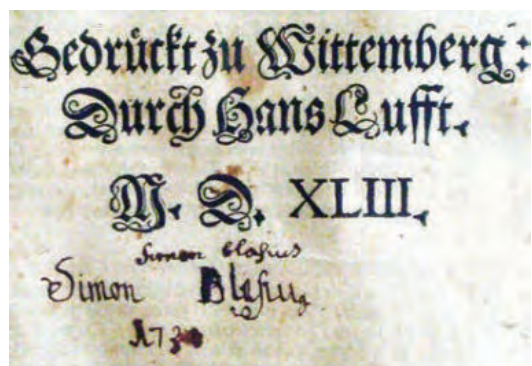 Gedrückt zu Wittemberg:
Durch Hans Lufft.
M. D. XLIII.
Simon Blasius
Simon Blasius